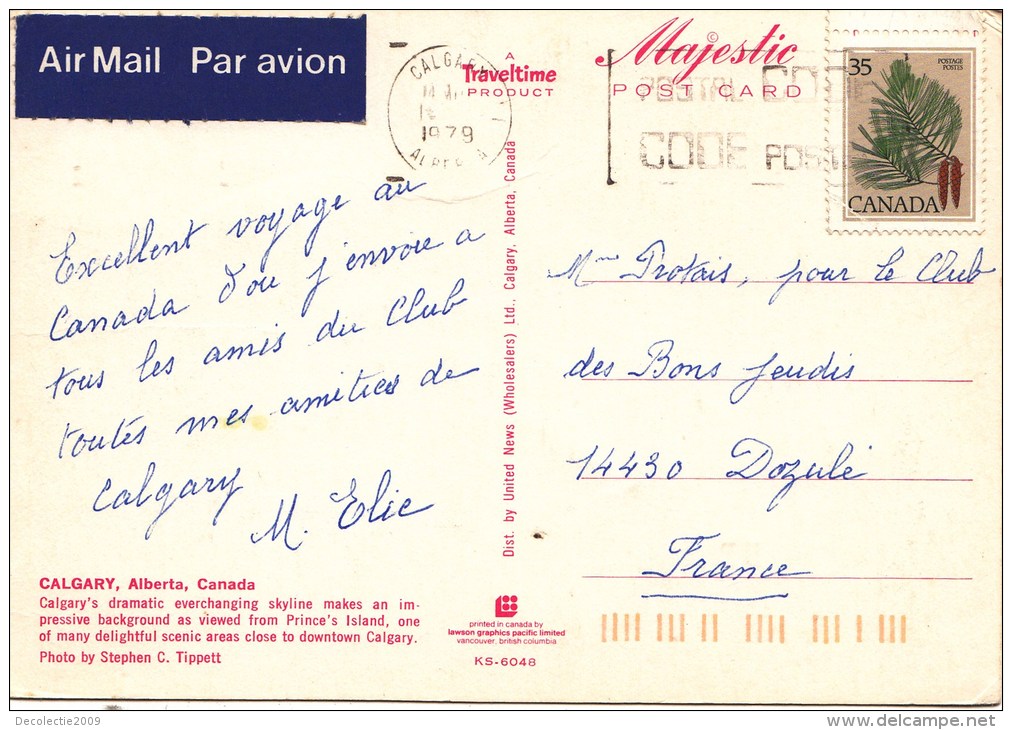 Air Mail Par avion
CALGARY
1979
A
Traveltime
PRODUCT
Majestic
POST CARD
POSTAL CODE
CODE POSTAL
35
POSTAGE
POSTES
CANADA
Excellent voyage au
Canada d'ou j'envoie a
tous les amis du Club
toutes mes amitiés de
Calgary
M. Elie
Dist. by United News (Wholesalers) Ltd., Calgary, Alberta, Canada
Mme Protais, pour le Club
des Bons Jeudis
14430 Dozulé
France
CALGARY, Alberta, Canada
Calgary's dramatic everchanging skyline makes an im-
pressive background as viewed from Prince's Island, one
of many delightful scenic areas close to downtown Calgary.
Photo by Stephen C. Tippett
printed in canada by
lawson graphics pacific limited
vancouver, british columbia
KS-6048
Decolectie2009
delcampe.net